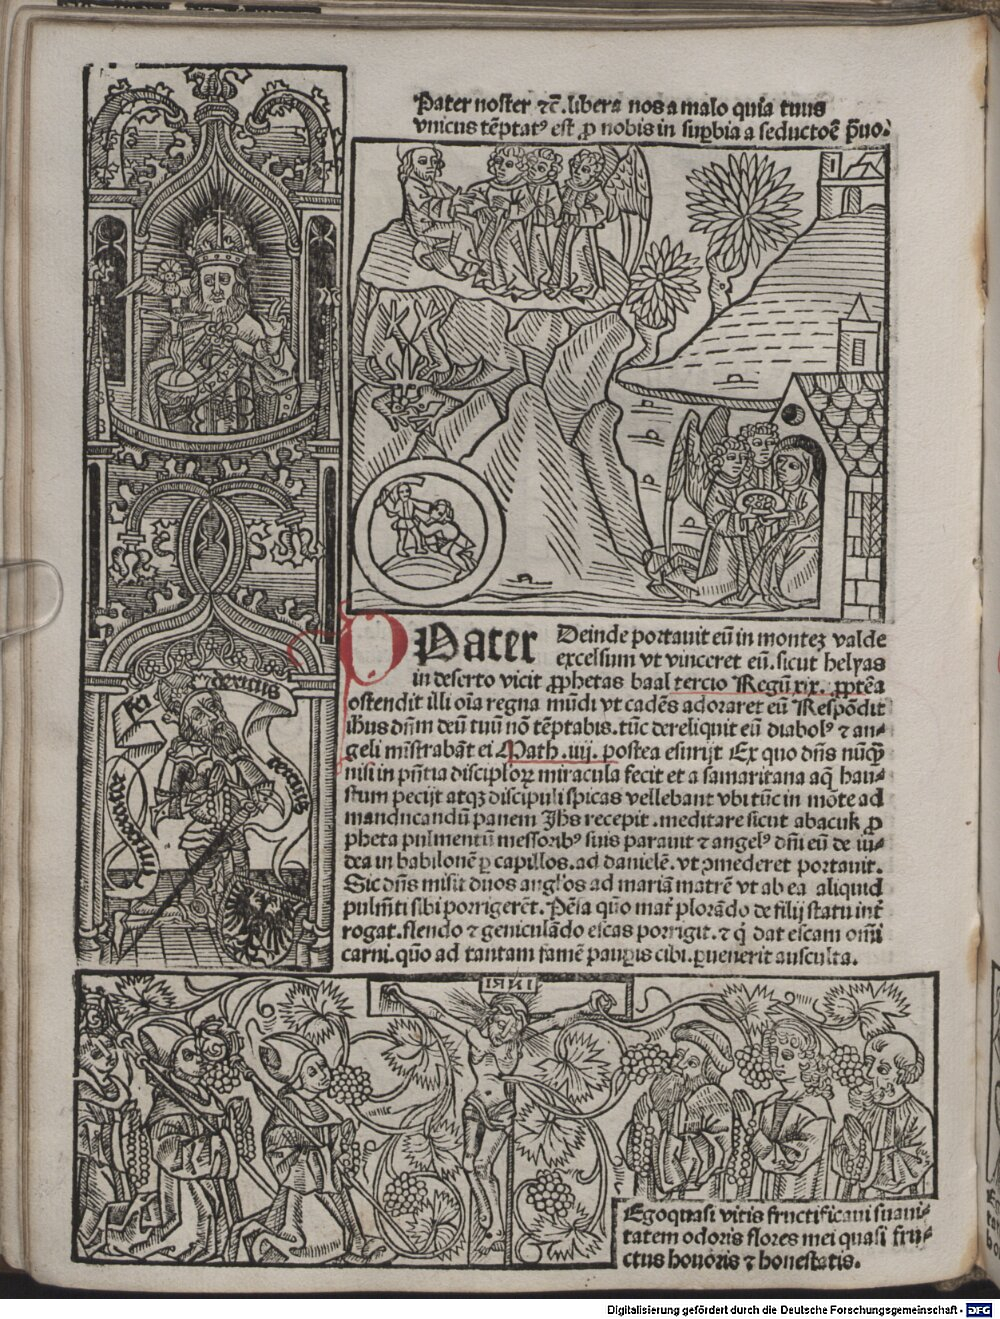 Pater noster ⁊c̃. libera nos a malo quia tuus
vnicus tẽptatꝰ est ꝓ nobis in suꝑbia a seductoẽ p̃uo.
INRI
Pater Deinde portauit eũ in montez valde
excelsum vt vinceret eũ. sicut helyas
in deserto vicit ꝓphetas baal tercio Regũ xix. ꝓptẽa
ostendit illi oĩa regna mũdi vt cadẽs adoraret eũ Respõdit
ihus dñm deũ tuũ nõ tẽptabis. tũc dereliquit eũ diabolꝰ ⁊ an⸗
geli mĩstrabãt ei Math. iiij. postea esurijt Ex quo dñs nũqꝫ
nisi in pñtia disciploꝝ miracula fecit et a samaritana aq̃ hau⸗
stum pecijt atqꝫ discipuli spicas vellebant vbi tũc in mõte ad
manducandũ panem Jhs recepit. meditare sicut abacuk ꝓ
pheta pulmentũ messoribꝰ suis parauit ⁊ angelꝰ dñi eũ de iu⸗
dea in babilonẽ ꝑ capillos. ad danielẽ. vt ꝯmederet portauit.
Sic dñs misit duos angl̃os ad mariã matrẽ vt ab ea aliquid
pulm̃ti sibi porrigerẽt. Pẽsa quõ mat̃ plorãdo de filij statu int̃
rogat. flendo ⁊ geniculãdo escas porrigit. ⁊ q̃ dat escam oñi
carni. quõ ad tantam famẽ pauꝑis cibi. ꝑuenerit ausculta.
Fridericus
tercius
Ego quasi vitis fructificaui suaui⸗
tatem odoris flores mei quasi fru⸗
ctus honoris ⁊ honestatis.
Digitalisierung gefördert durch die Deutsche Forschungsgemeinschaft - DFG